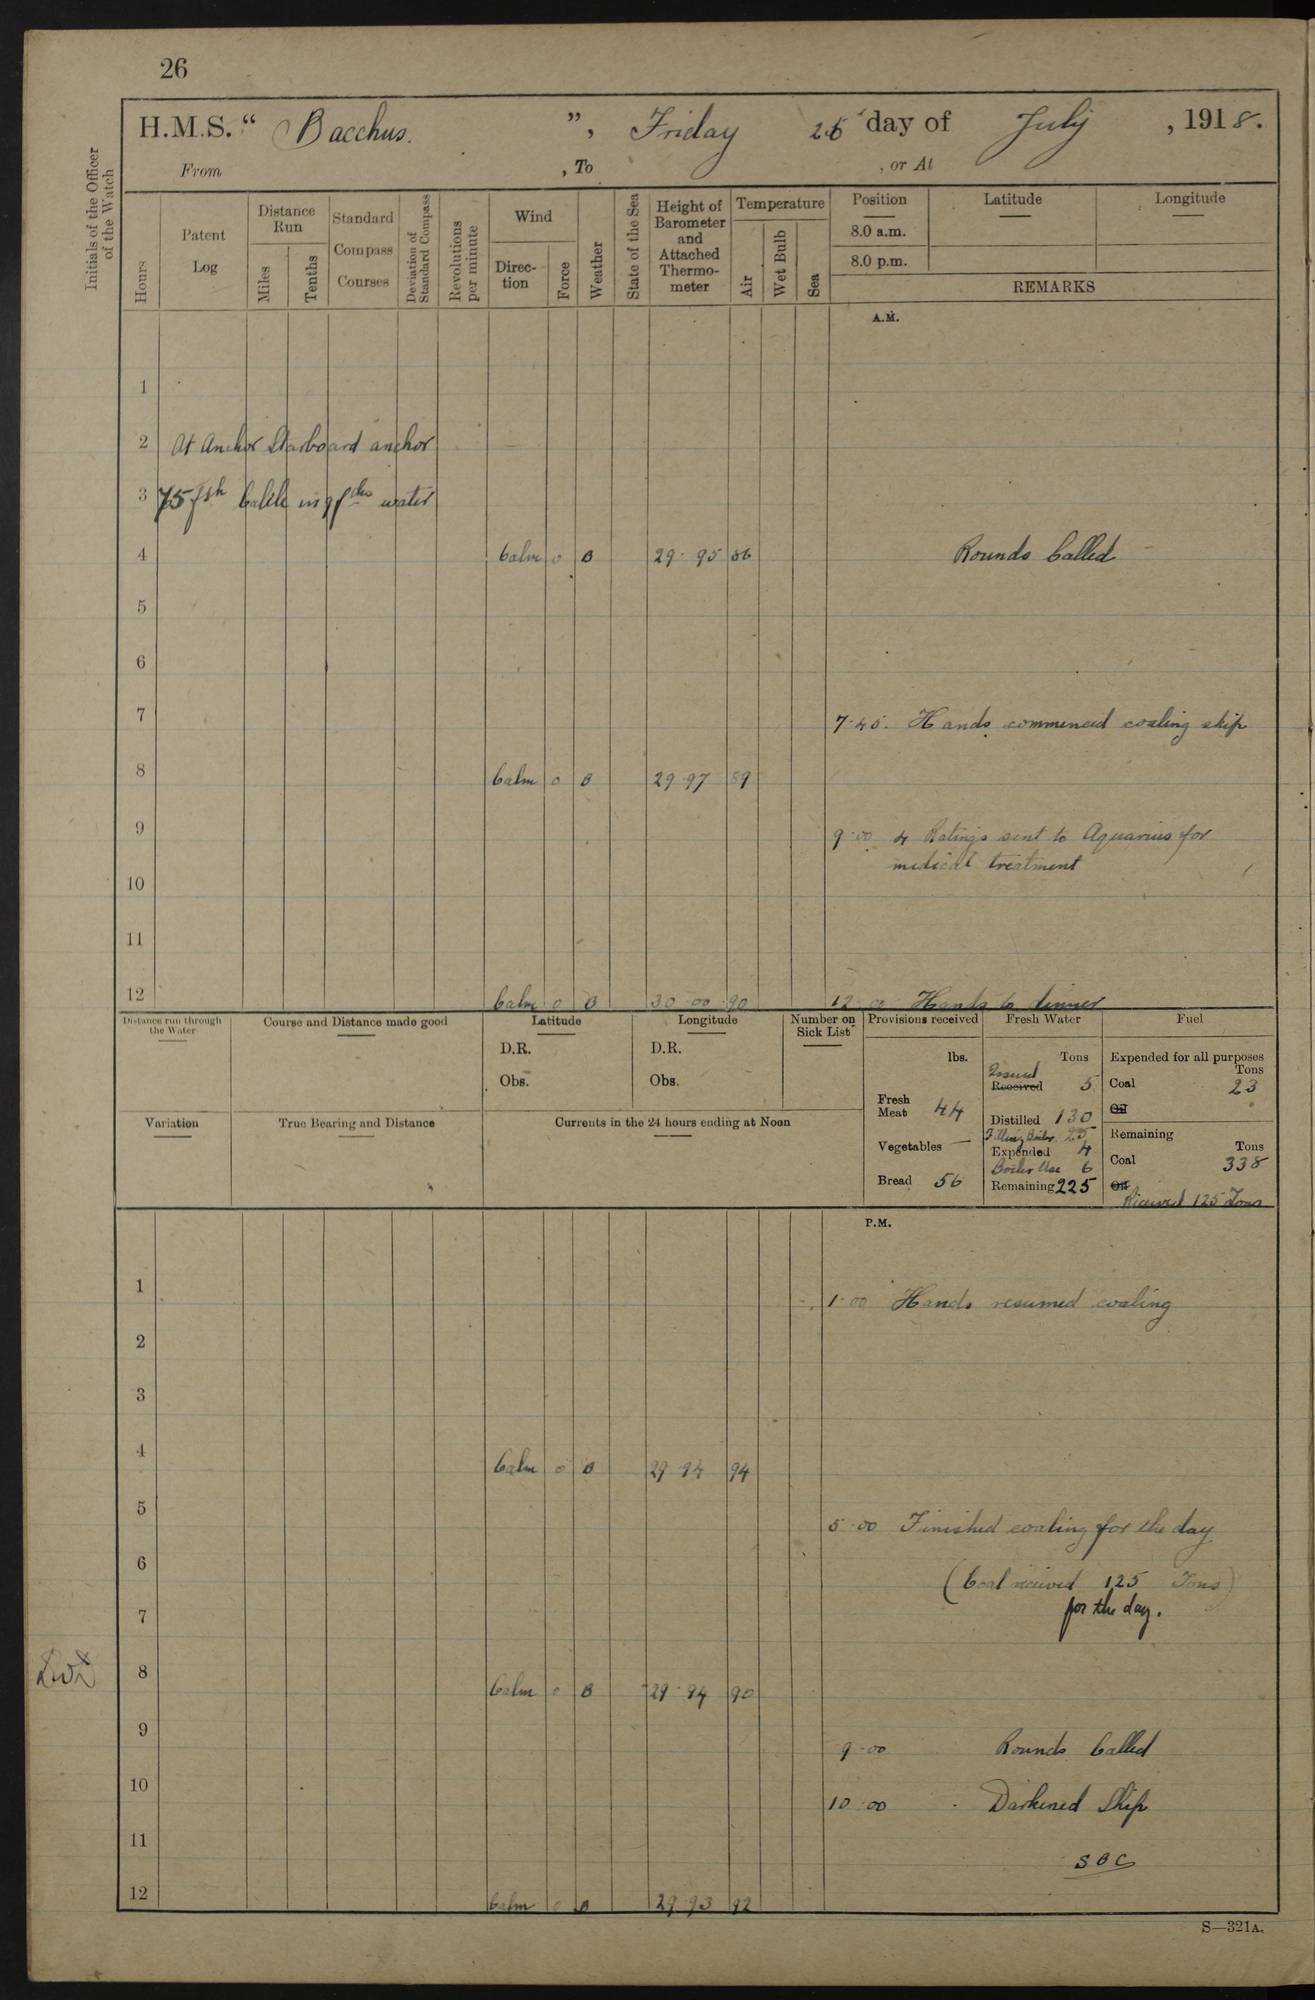 26
H.M.S. " Bacchus. ", Friday 26 day of July, 1918.
From , To , or At
Initials of the Officer of the Watch
Hours
Patent Log
Distance Run
Miles
Tenths
Standard Compass Courses
Deviation of Standard Compass
Revolutions per minute
Wind
Direc-tion
Force
Weather
State of the Sea
Height of Barometer and Attached Thermo-meter
Temperature
Air
Wet Bulb
Sea
Position
8.0 a.m.
8.0 p.m.
Latitude
Longitude
REMARKS
A.M.
1
2 At Anchor Starboard anchor
3 75 fth Cable in 9 fths water
4 Calm 0 B 29.95 86 Rounds Called
5
6
7 7.45. Hands commenced coaling ship
8 Calm 0 B 29.97 89
9 9.00 4 Ratings sent to Aquarius for
medical treatment
10
11
12 Calm 0 B 30.00 90 12.00 Hands to dinner
Distance run through the Water
Course and Distance made good
Latitude
D.R.
Obs.
Longitude
D.R.
Obs.
Number on Sick List
Provisions received
lbs.
Fresh Meat 44
Vegetables —
Bread 56
Fresh Water
Tons
Issued
Received 5
Distilled 130
Filling Boiler 25
Expended 4
Boiler Use 6
Remaining 225
Fuel
Expended for all purposes
Tons
Coal 23
Oil
Remaining
Tons
Coal 338
Oil
Received 125 Tons
Variation
True Bearing and Distance
Currents in the 24 hours ending at Noon
P.M.
1 1.00 Hands resumed coaling
2
3
4 Calm 0 B 29.94 94
5 5.00 Finished coaling for the day
6 (Coal received 125 Tons)
7 for the day.
8 Calm 0 B 29.94 90
9 9.00 Rounds Called
10 10.00 Darkened Ship
11 SBC
12 Calm 0 B 29.93 92
S—321A.